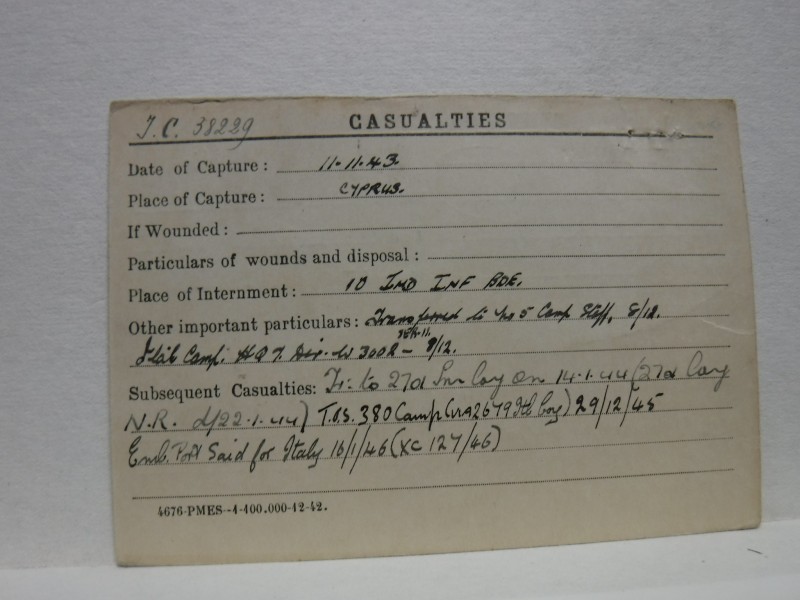 J.C. 38229 CASUALTIES
Date of Capture: 11.11.43.
Place of Capture: CYPRUS.
If Wounded:
Particulars of wounds and disposal:
Place of Internment: 10 IND INF BDE.
Other important particulars: Transferred to No 5 Camp Staff, 8/12.
Camp. H Q 7 Div. 300R - 8/12.
Subsequent Casualties: Tr. to 27d Coy on 14.1.44 (27d Coy
N.R. d/22.1.44) T.O.S. 380 Camp (2679 Itl Coy) 29/12/45
Emb. Port Said for Italy 16/1/46 (XC 127/46)
4676-PMES--1-100.000-12-42.